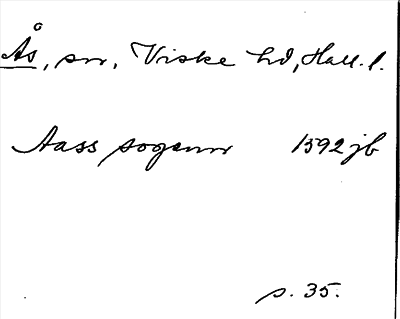 Ås, sn, Viske hd, Hall. l.
Aass sogenn 1592 jb
s. 35.